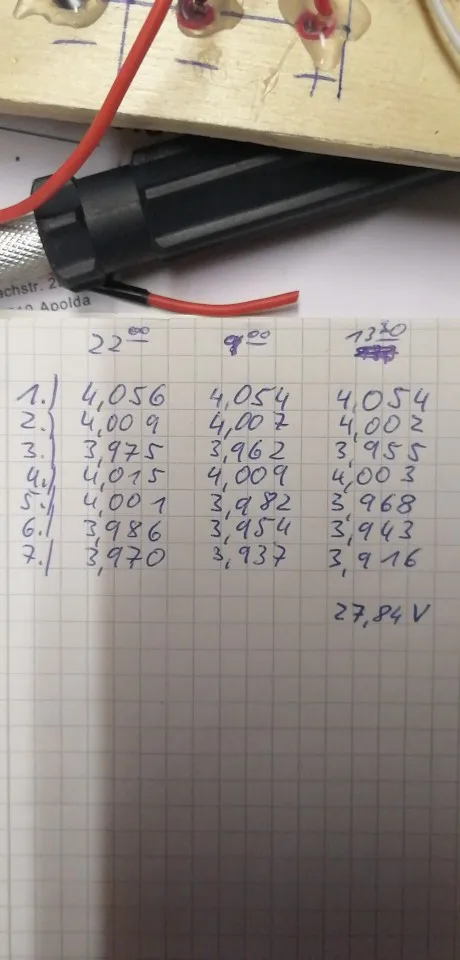 achstr. 2
Apolda
22⁰⁰ 9⁰⁰
1.) 4,056 4,054 4,054
2.) 4,009 4,007 4,002
3.) 3,975 3,962 3,955
4.) 4,015 4,009 4,003
5.) 4,001 3,982 3,968
6.) 3,986 3,954 3,943
7.) 3,970 3,937 3,916
27,84 V